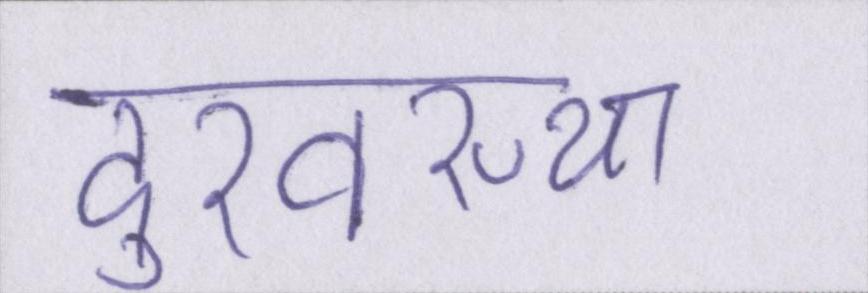 दुरवस्था